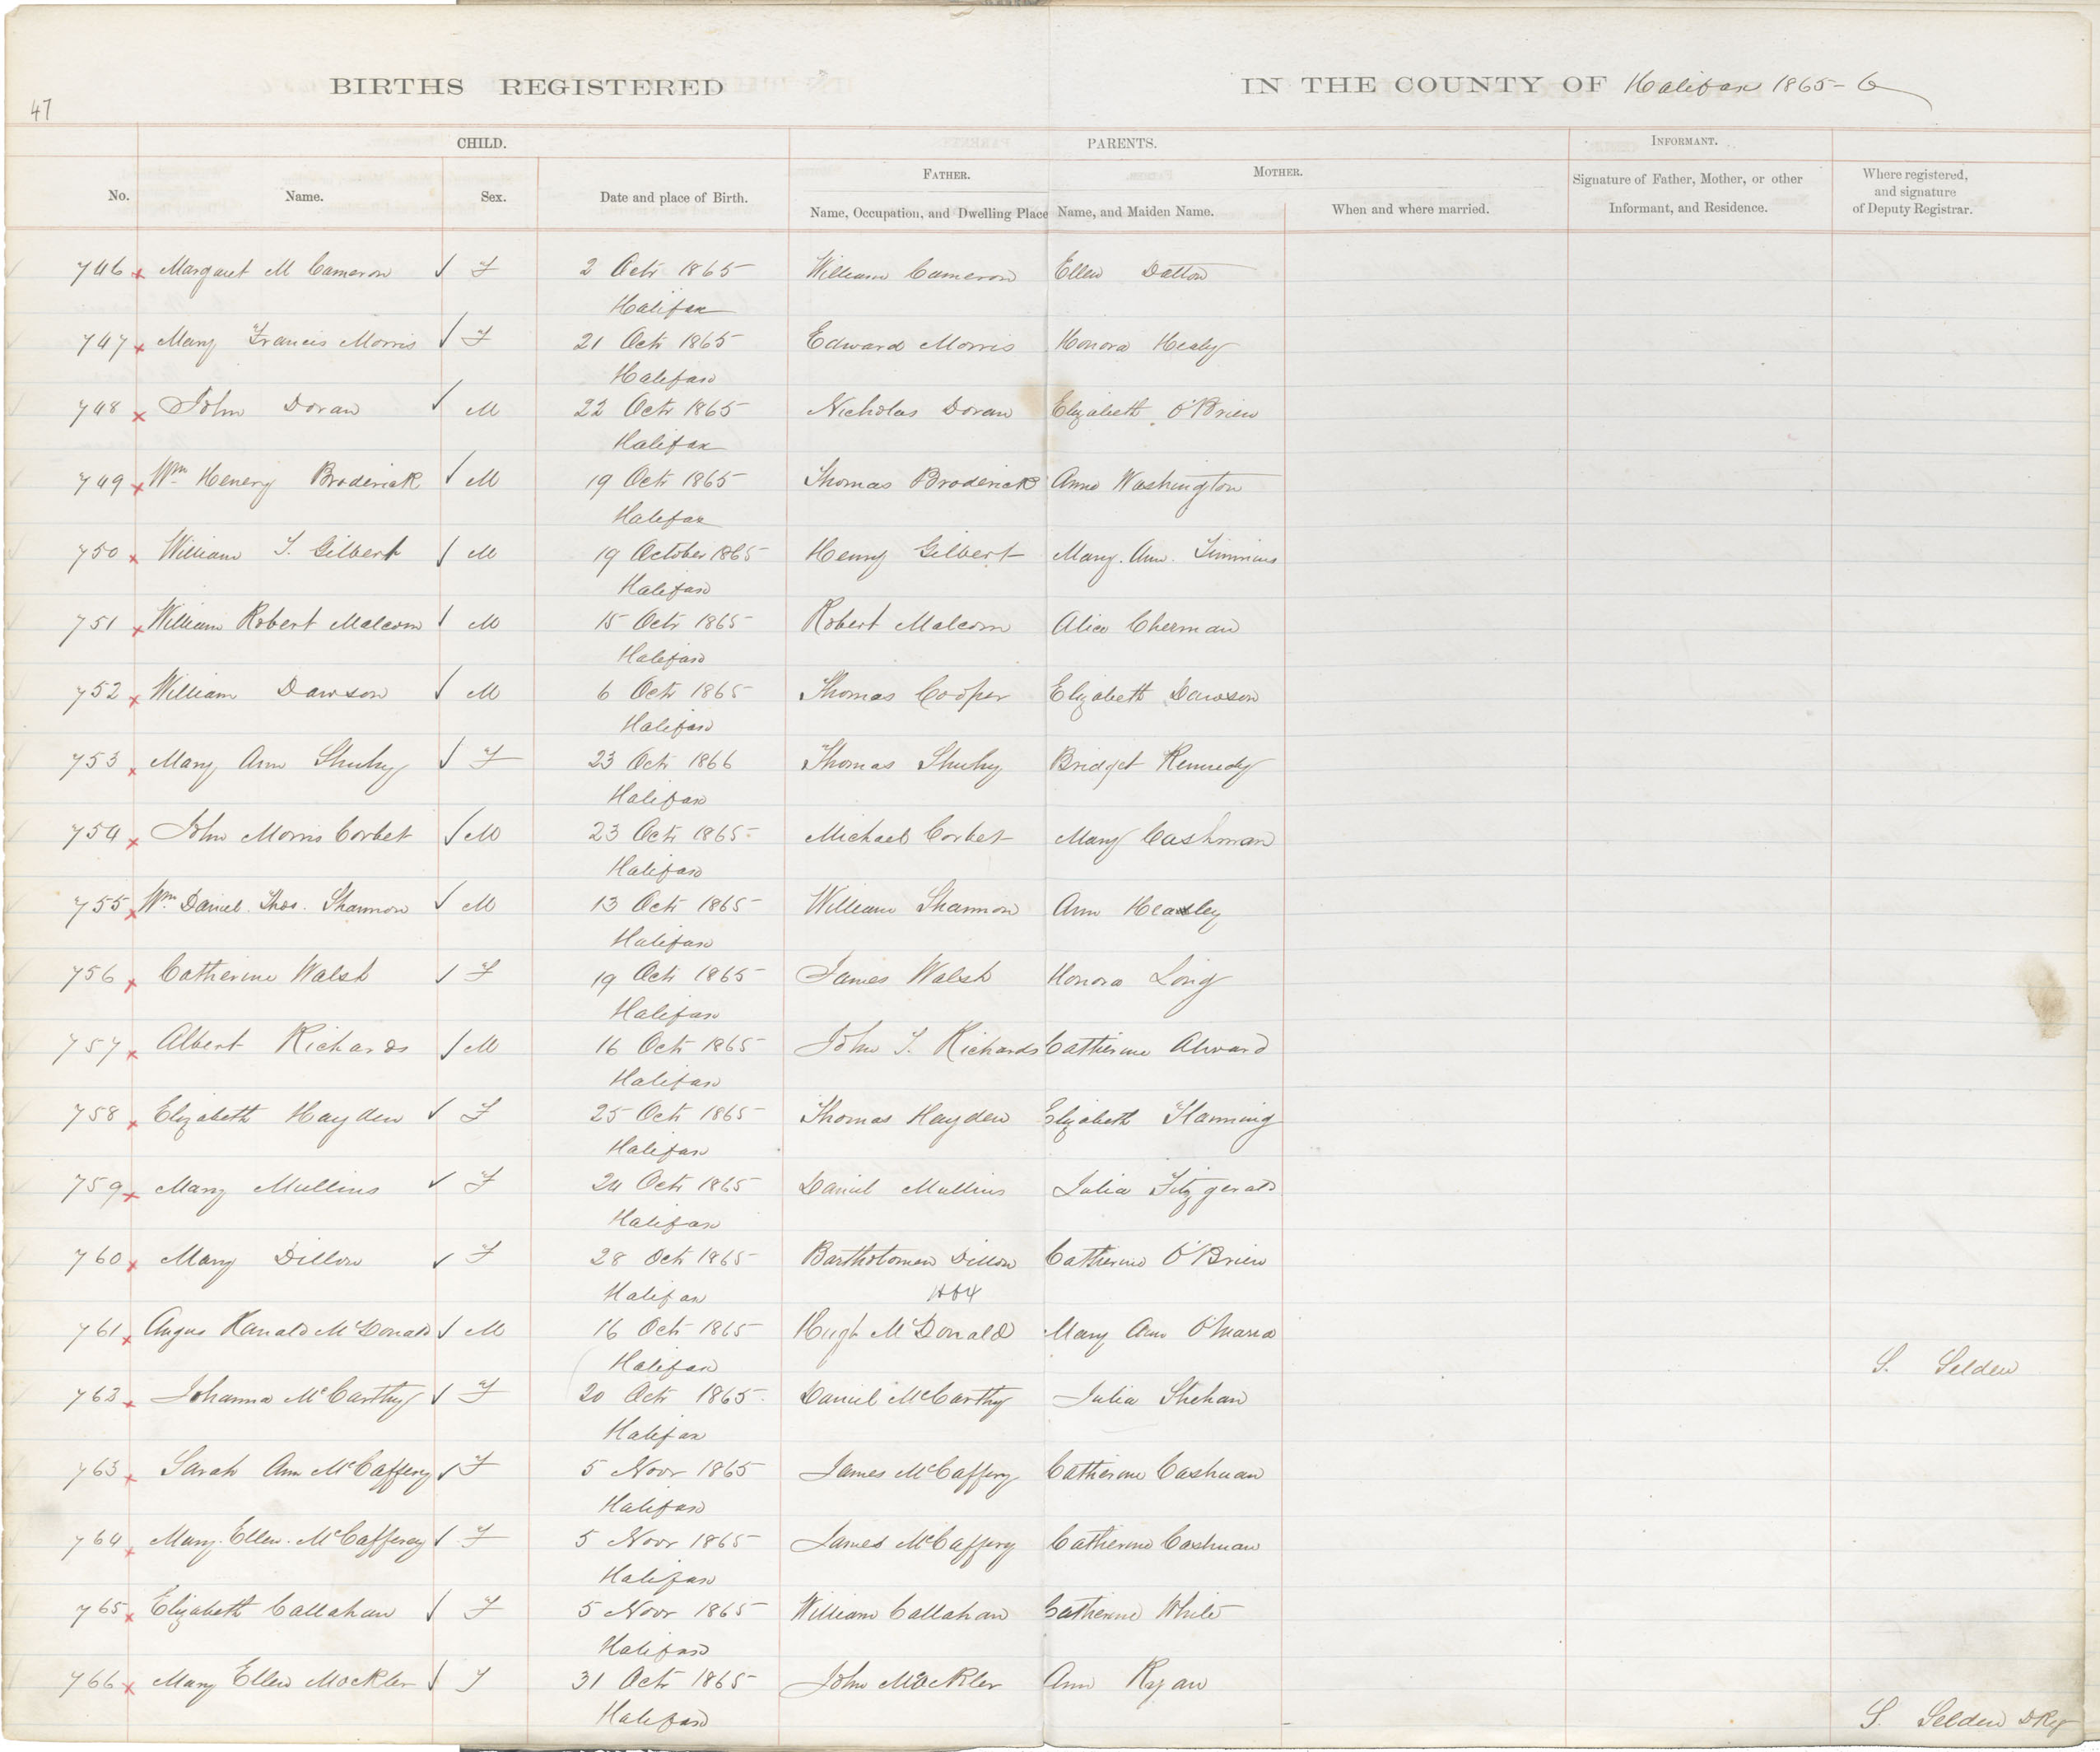 BIRTHS REGISTERED IN THE COUNTY OF Halifax 1865-6
47
CHILD. PARENTS. INFORMANT.
FATHER. MOTHER.
No. Name. Sex. Date and place of Birth. Name, Occupation, and Dwelling Place Name, and Maiden Name. When and where married. Signature of Father, Mother, or other Informant, and Residence. Where registered, and signature of Deputy Registrar.
746 x Margaret M Cameron ✓ F 2 Octr 1865 William Cameron Ellen Dalton
Halifax
747 x Mary Francis Morris ✓ F 21 Octr 1865 Edward Morris Honora Healy
Halifax
748 x John Doran ✓ M 22 Octr 1865 Nicholas Doran Elizabeth O'Brien
Halifax
749 x Wm Henery Broderick ✓ M 19 Octr 1865 Thomas Broderick Anne Washington
Halifax
750 x William T. Gilbert ✓ M 19 October 1865 Henry Gilbert Mary. Ann. Timmins
Halifax
751 x William Robert Malcom ✓ M 15 Octr 1865 Robert Malcom Alice Cherman
Halifax
752 x William Dawson ✓ M 6 Octr 1865 Thomas Cooper Elizabeth Dawson
Halifax
753 x Mary Ann Shuhy ✓ F 23 Octr 1866 Thomas Shuhy Bridget Kennedy
Halifax
754 x John Morris Corbet ✓ M 23 Octr 1865 Michael Corbet Mary Cashman
Halifax
755 x Wm Daniel. Thos. Shannon ✓ M 13 Octr 1865 William Shannon Ann
Halifax
756 x Catherine Walsh ✓ F 19 Octr 1865 James Walsh Honora Long
Halifax
757 x Albert Richards ✓ M 16 Octr 1865 John T. Richards Catherine Alward
Halifax
758 x Elizabeth Hayden ✓ F 25 Octr 1865 Thomas Hayden Elizabeth Flanning
Halifax
759 x Mary Mullins ✓ F 24 Octr 1865 Daniel Mullins Julia Fitzgerald
Halifax
760 x Mary Dillon ✓ F 28 Octr 1865 Bartholomew Dillon Catherine O'Brien
Halifax
761 x Angus Ranald McDonald ✓ M 16 Octr 1865 Hugh McDonald Mary Ann O'Mara
Halifax S. Selden
762 x Johanna McCarthy ✓ F 20 Octr 1865 Daniel McCarthy Julia Shehan
Halifax
763 x Sarah Ann McCaffery ✓ F 5 Novr 1865 James McCaffery Catherine Cashman
Halifax
764 x Mary. Ellen. McCafferay ✓ F 5 Novr 1865 James McCaffery Catherine Cashman
Halifax
765 x Elizabeth Callahan ✓ F 5 Novr 1865 William Callahan Catherine White
Halifax
766 x Mary Ellen Mockler ✓ F 31 Octr 1865 John Mockler Ann Ryan
Halifax S. Selden D Reg